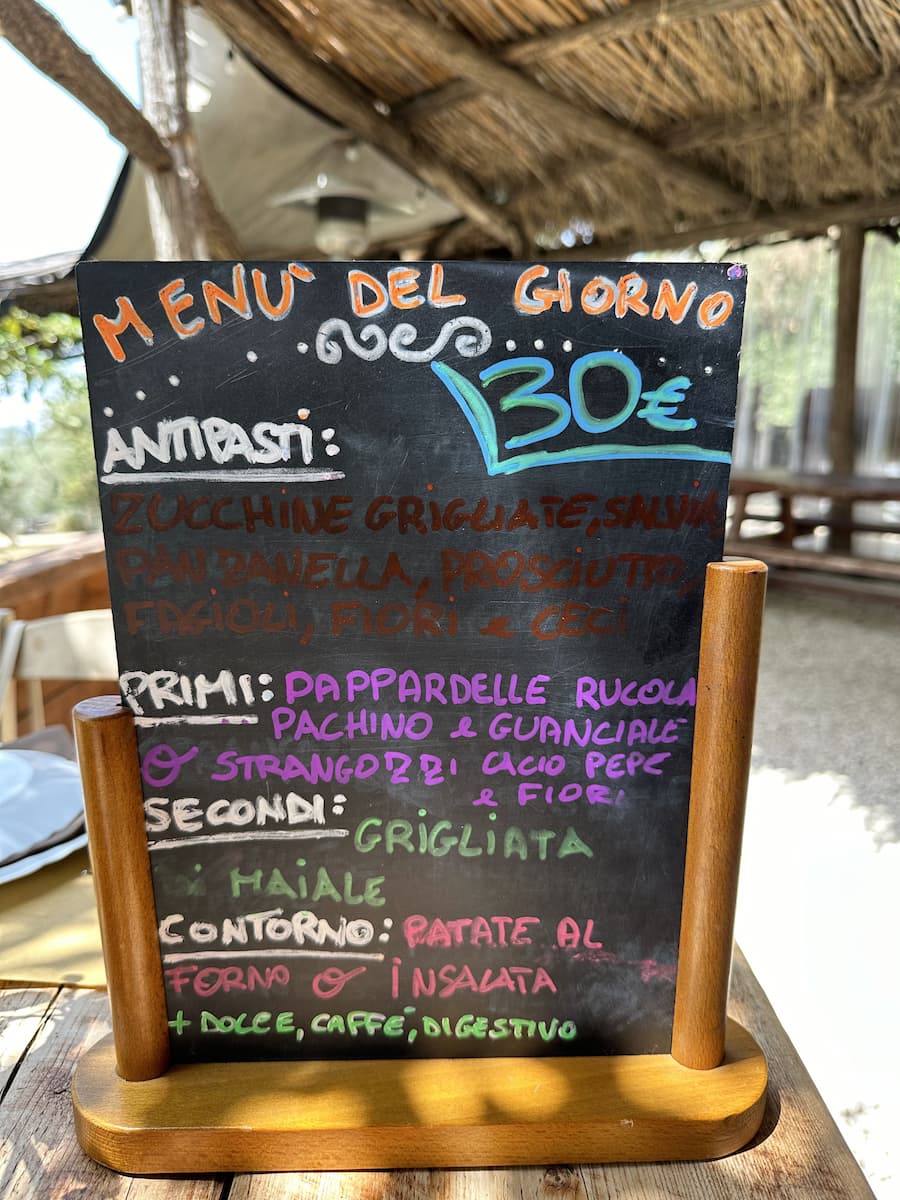 MENU` DEL GIORNO
30€
ANTIPASTI:
ZUCCHINE GRIGLIATE, SALVIA
PANZANELLA, PROSCIUTTO,
FAGIOLI, FIORI e CECI
PRIMI: PAPPARDELLE RUCOLA
PACHINO e GUANCIALE
O STRANGOZZI CACIO PEPE
e FIORI
SECONDI:
GRIGLIATA
di MAIALE
CONTORNO: PATATE AL
FORNO O INSALATA
+ DOLCE, CAFFE', DIGESTIVO